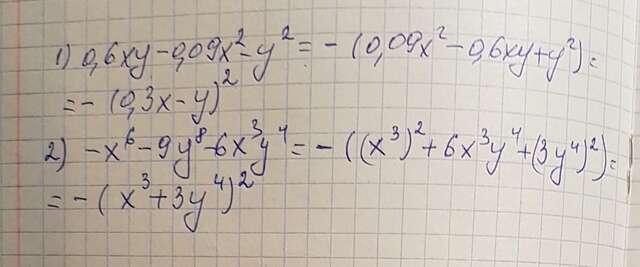 1) 0,6xy-0,09x²-y² = -(0,09x²-0,6xy+y²)=
= -(0,3x-y)²
2) -x⁶-9y⁸-6x³y⁴ = -((x³)²+6x³y⁴+(3y⁴)²)=
= -(x³+3y⁴)²